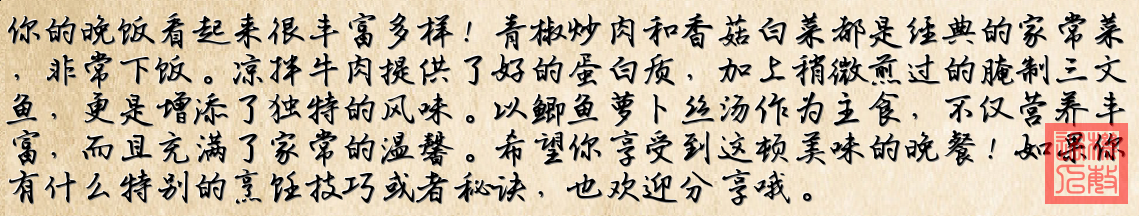 你的晚饭看起来很丰富多样！青椒炒肉和香菇白菜都是经典的家常菜
，非常下饭。凉拌牛肉提供了好的蛋白质，加上稍微煎过的腌制三文
鱼，更是增添了独特的风味。以鲫鱼萝卜丝汤作为主食，不仅营养丰
富，而且充满了家常的温馨。希望你享受到这顿美味的晚餐！如果你
有什么特别的烹饪技巧或者秘诀，也欢迎分享哦。